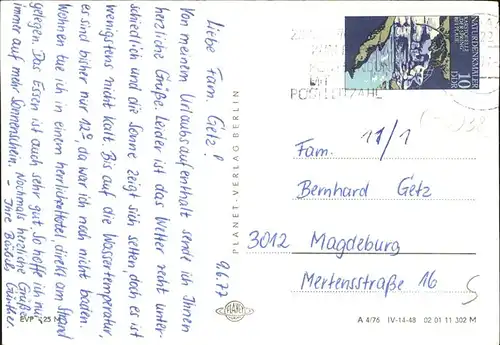 9.6.77
Liebe Fam. Getz!
Von meinem Urlaubsaufenthalt sende ich Ihnen
herzliche Grüße. Leider ist das Wetter recht unter-
schiedlich und die Sonne zeigt sich selten, doch es ist
wenigstens nicht kalt. Bis auf die Wassertemperatur,
es sind bisher nur 12°, da war ich noch nicht baden.
Wohnen tue ich in einem herrlichen Hotel, direkt am Strand
gelegen. Das Essen ist auch sehr gut. So hoffe ich nur
immer auf mehr Sonnenschein. - Nochmals herzliche Grüße
Ihre Bärbel Günther.
EVP -,25 M
PLANET-VERLAG BERLIN
PLANET
NATURDENKMALE
10
DDR
POSTLEITZAHL
11/1
Fam.
Bernhard Getz
3012 Magdeburg
Mertensstraße 16
5
A 4/76 IV-14-48 02 01 11 302 M